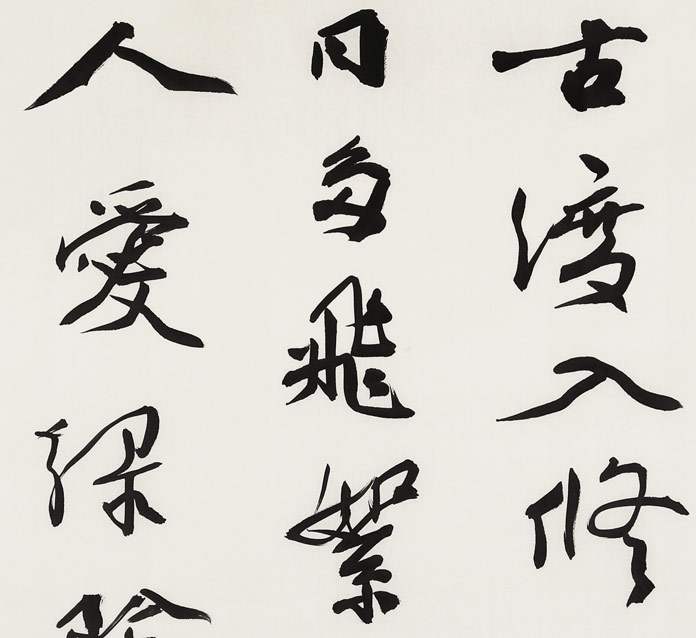 古渡入修
日多飛絮
人愛綠